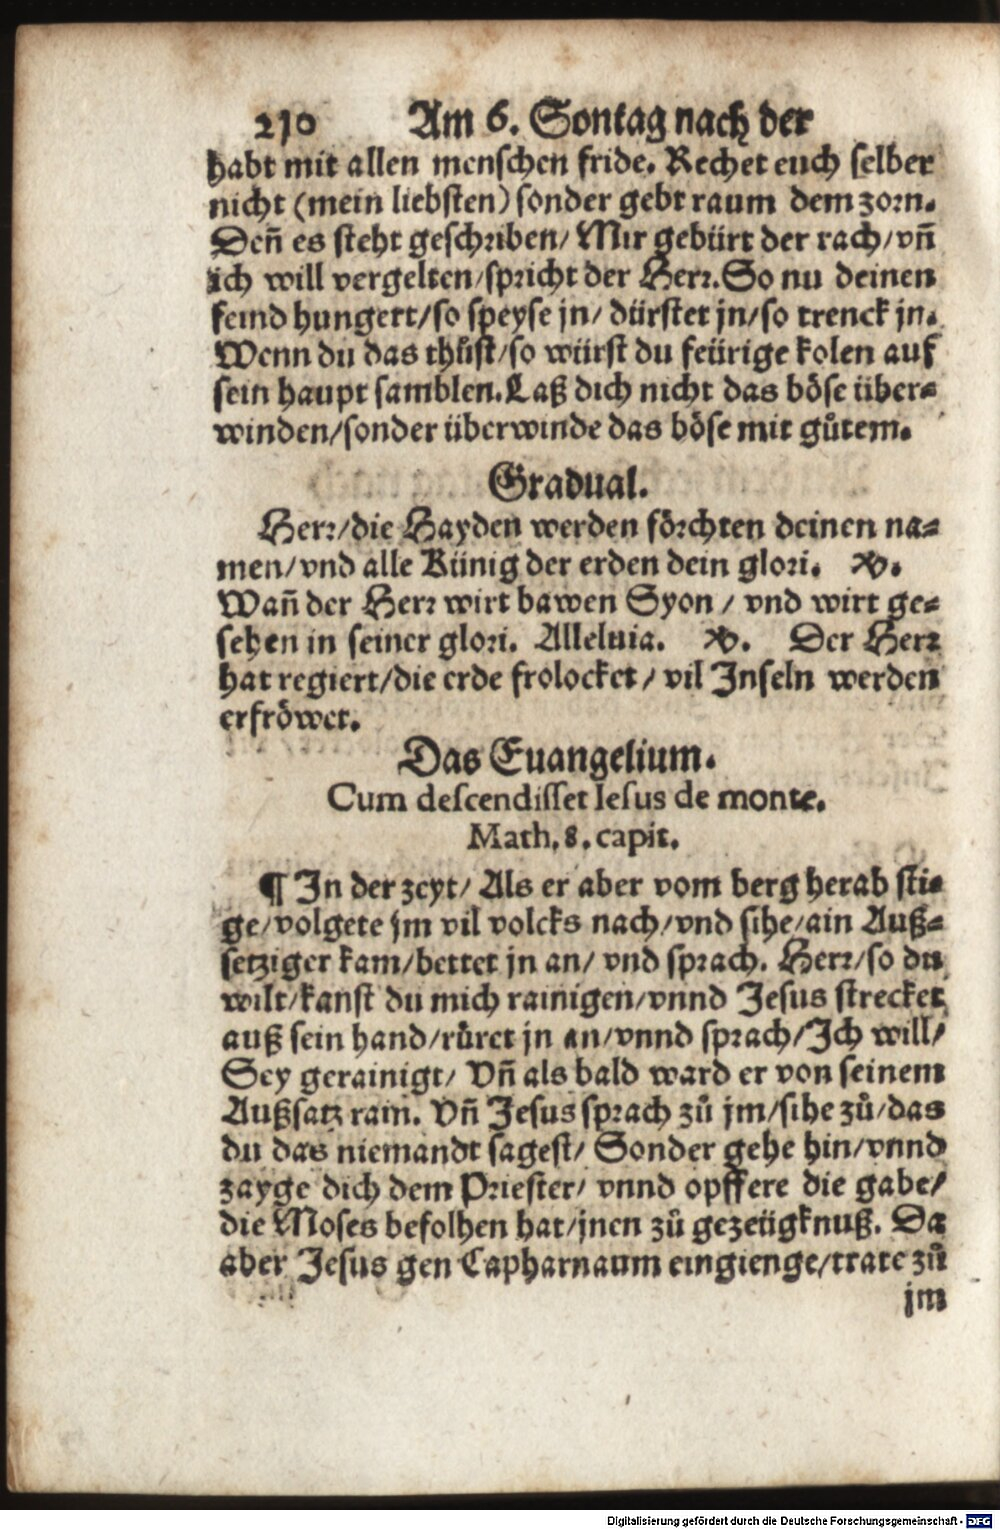 210 Am 6. Sontag nach der
habt mit allen menschen fride. Rechet euch selber
nicht (mein liebsten) sonder gebt raum dem zorn.
Deñ es steht geschriben/ Mir gebürt der rach/ vñ
ich will vergelten/ spricht der Herr. So nu deinen
feind hungert/ so speyse jn/ dürstet jn/ so trenck jn.
Wenn du das thůst/ so würst du feürige kolen auf
sein haupt samblen. Laß dich nicht das böse über⸗
winden/ sonder überwinde das böse mit gůtem.
Gradual.
Herr/ die Hayden werden förchten deinen na⸗
men/ vnd alle Künig der erden dein glori. ℣.
Wañ der Herr wirt bawen Syon / vnd wirt ge⸗
sehen in seiner glori. Alleluia. ℣. Der Herr
hat regiert/ die erde frolocket / vil Inseln werden
erfröwet.
Das Euangelium.
Cum descendisset Iesus de monte.
Math. 8. capit.
¶ In der zeyt/ Als er aber vom berg herab sti⸗
ge/ volgete jm vil volcks nach/ vnd sihe/ ain Auß⸗
setziger kam/ bettet jn an/ vnd sprach. Herr/ so du
wilt/ kanst du mich rainigen/ vnnd Jesus strecket
auß sein hand/ růret jn an/ vnnd sprach/ Ich will/
Sey gerainigt/ Vñ als bald ward er von seinem
Außsatz rain. Vñ Jesus sprach zů jm/ sihe zů/ das
du das niemandt sagest/ Sonder gehe hin/ vnnd
zayge dich dem Priester/ vnnd opffere die gabe/
die Moses befolhen hat/ jnen zů gezeügknuß. Da
aber Jesus gen Capharnaum eingienge/ trate zů
jm
Digitalisierung gefördert durch die Deutsche Forschungsgemeinschaft - DFG